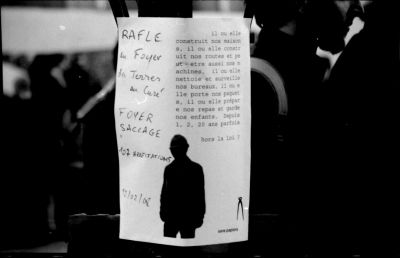 RAFLE
au Foyer
des Terres
au Curé
FOYER
SACCAGÉ
107 ARRESTATIONS
12/02/08
il ou elle
construit nos maison
s, il ou elle constr
uit nos routes et pe
ut-etre aussi nos m
achines, il ou elle
nettoie et surveille
nos bureaux. il ou e
lle porte nos paquet
s, il ou elle prépar
e nos repas et garde
nos enfants. Depuis
1, 2, 20 ans parfois
hors la loi ?
sans papiers